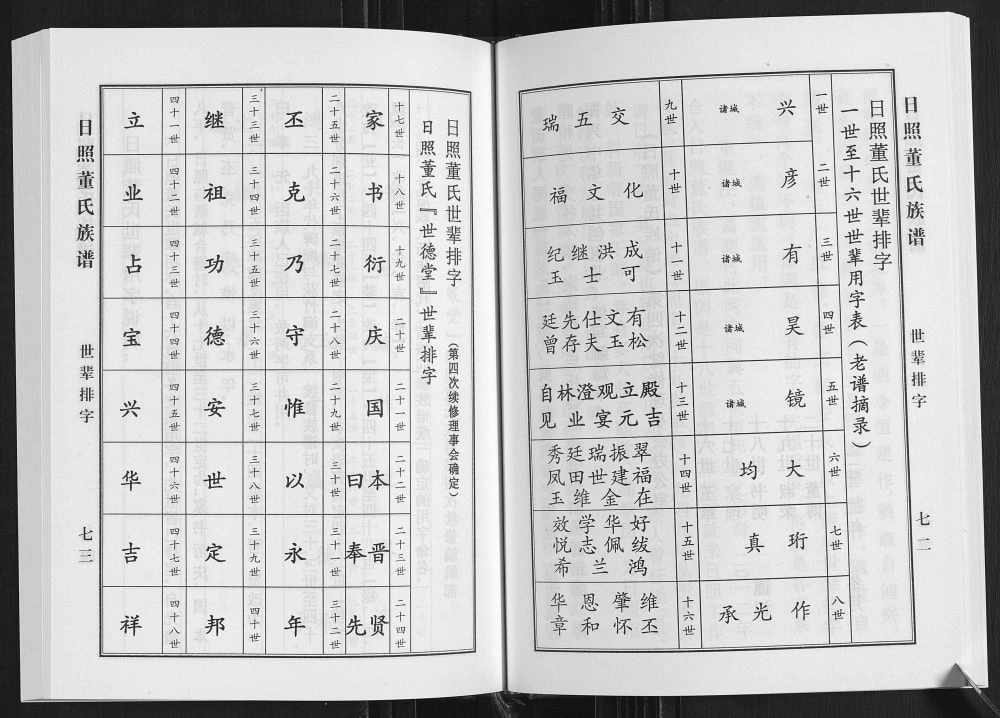 日照董氏族谱
世辈排字
七二
日照董氏世辈排字
一世至十六世世辈用字表（老谱摘录）
一世
二世
三世
四世
五世
六世
七世
八世
兴 诸城
彦 诸城
有 诸城
昊 诸城
镜 诸城
大 均
珩 真
作 光 承
九世
十世
十一世
十二世
十三世
十四世
十五世
十六世
交 五 瑞
化 文 福
成可 洪士 继 纪玉
有松 文玉 仕夫 先存 廷曾
殿吉 立元 观宴 澄业 林 自见
翠福在 振建金 瑞世维 廷田 秀凤玉
好绂鸿 华佩兰 学志 效悦希
维丕 肇怀 恩和 华章
日照董氏世辈排字
日照董氏『世德堂』世辈排字（第四次续修理事会确定）
十七世
十八世
十九世
二十世
二十一世
二十二世
二十三世
二十四世
家
书
衍
庆
国
本 曰
晋 奉
贤 先
二十五世
二十六世
二十七世
二十八世
二十九世
三十世
三十一世
三十二世
丕
克
乃
守
惟
以
永
年
三十三世
三十四世
三十五世
三十六世
三十七世
三十八世
三十九世
四十世
继
祖
功
德
安
世
定
邦
四十一世
四十二世
四十三世
四十四世
四十五世
四十六世
四十七世
四十八世
立
业
占
宝
兴
华
吉
祥
日照董氏族谱
世辈排字
七三